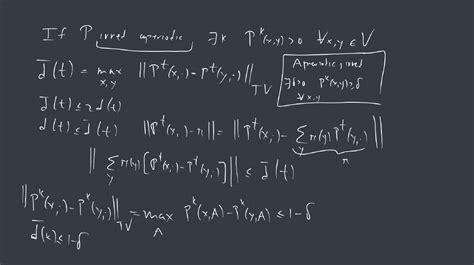 If P irred aperiodic ∃k P^k(x,y)>0 ∀x,y∈V
d̄(t) = max_{x,y} ||P^t(x,·)-P^t(y,·)||_{TV}
Aperiodic, irred
∃δ>0 P^k(x,y)≥δ
∀x,y
d̄(t)≤2d(t)
d(t)≤d̄(t) ||P^t(x,·)-π||=||P^t(x,·)-∑_y π(y)P^t(y,·)||
π
||∑_y π(y)[P^t(x,·)-P^t(y,·)]|| ≤ d̄(t)
||P^k(x,·)-P^k(y,·)||_{TV} = max_A P^k(x,A)-P^k(y,A) ≤1-δ
d̄(k)≤1-δ